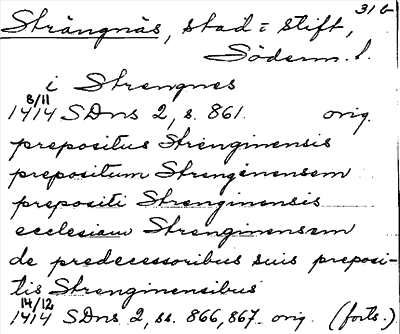 31 G
Strängnäs, stad = stift,
Söderm. l.
i Strengnes
8/11
1414 SDns 2, s. 861. orig.
prepositus Strenginensis
prepositum Strenginensem
prepositi Strenginensis
ecclesiam Strenginensem
de predecessoribus suis preposi-
tis Strenginensibus
14/12
1414 SDns 2, ss. 866, 867. orig. (forts.)